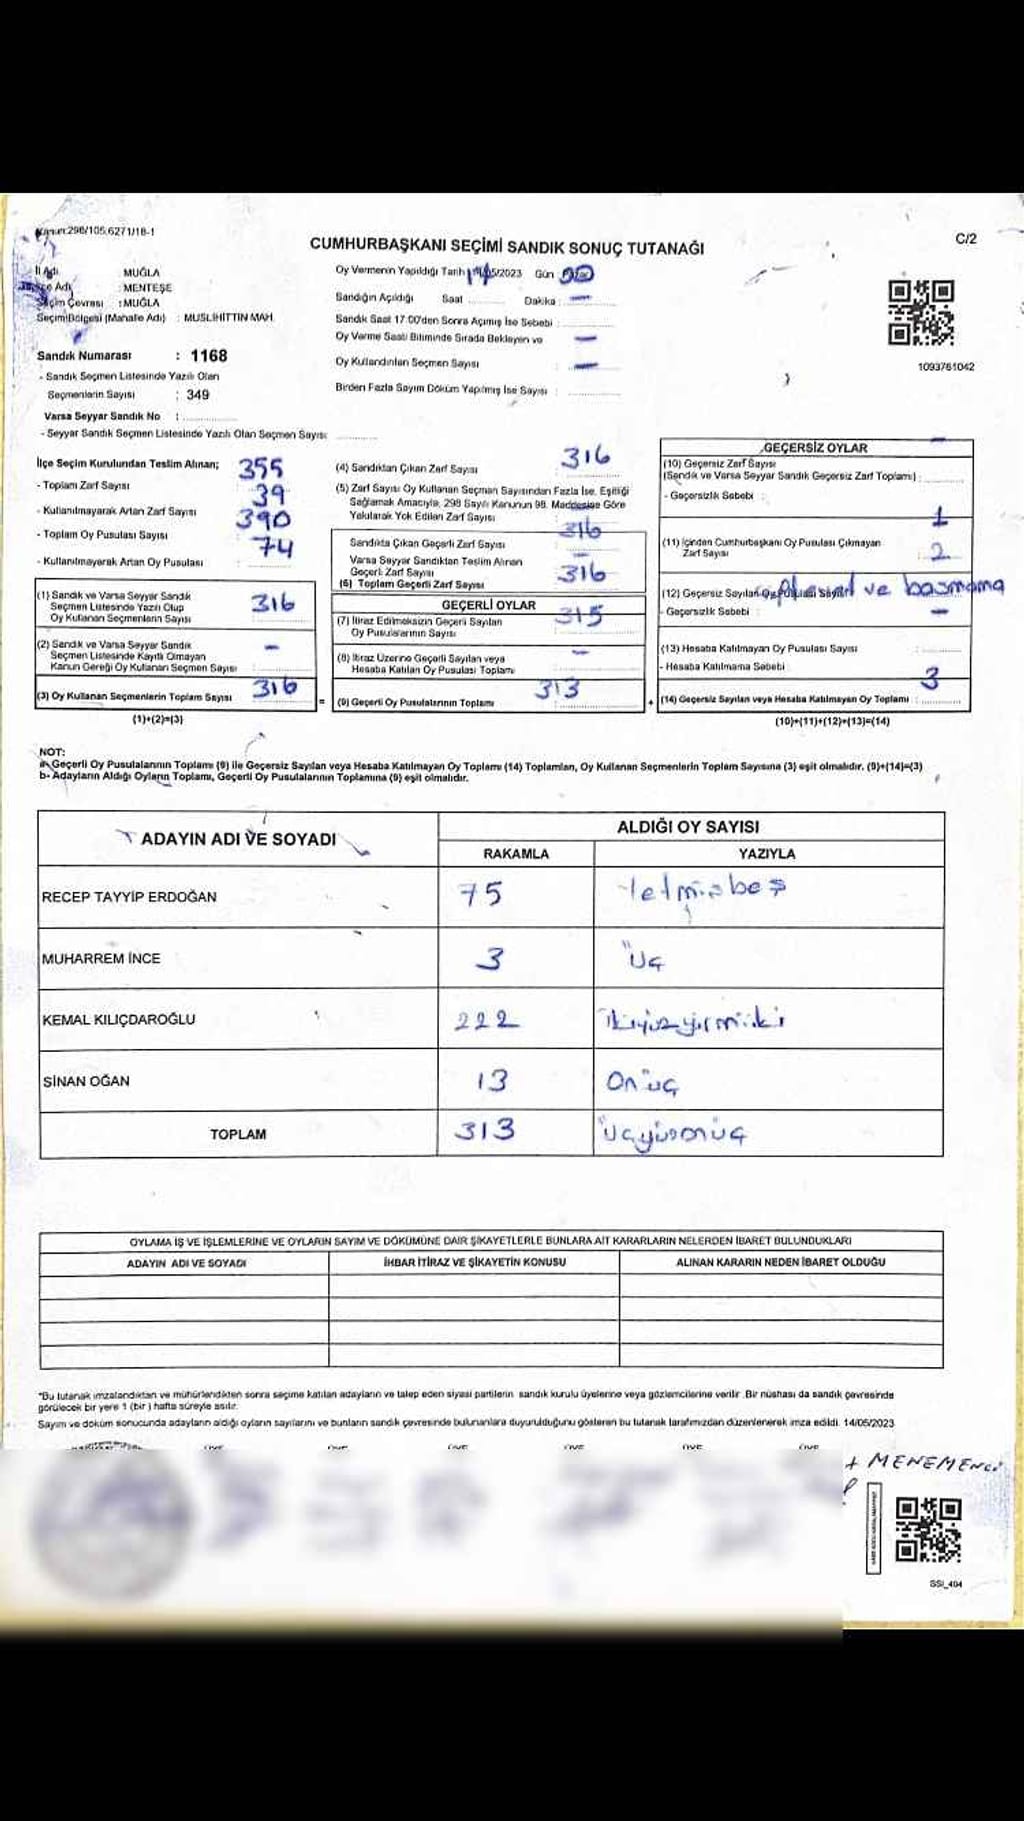 Kanun:298/105,6271/18-1
C/2
CUMHURBAŞKANI SEÇİMİ SANDIK SONUÇ TUTANAĞI
İl Adı : MUĞLA
İlçe Adı : MENTEŞE
Seçim Çevresi : MUĞLA
Seçim Bölgesi (Mahalle Adı) : MUSLİHİTTİN MAH.
Sandık Numarası : 1168
- Sandık Seçmen Listesinde Yazılı Olan
Seçmenlerin Sayısı : 349
Varsa Seyyar Sandık No :
- Seyyar Sandık Seçmen Listesinde Yazılı Olan Seçmen Sayısı:
Oy Vermenin Yapıldığı Tarih 14/05/2023 Gün
Sandığın Açıldığı Saat Dakika : —
Sandık Saat 17:00'den Sonra Açımış İse Sebebi :
Oy Verme Saati Bitiminde Sırada Bekleyen ve —
Oy Kullandırılan Seçmen Sayısı : —
Birden Fazla Sayım Döküm Yapılmış İse Sayısı :
1093761042
İlçe Seçim Kurulundan Teslim Alınan;
- Toplam Zarf Sayısı 355
- Kullanılmayarak Artan Zarf Sayısı 39
- Toplam Oy Pusulası Sayısı 390
- Kullanılmayarak Artan Oy Pusulası 74
(1) Sandık ve Varsa Seyyar Sandık
Seçmen Listesinde Yazılı Olup
Oy Kullanan Seçmenlerin Sayısı 316
(2) Sandık ve Varsa Seyyar Sandık
Seçmen Listesinde Kayıtlı Olmayan
Kanun Gereği Oy Kullanan Seçmen Sayısı : -
(3) Oy Kullanan Seçmenlerin Toplam Sayısı 316
(1)+(2)=(3)
=
(4) Sandıktan Çıkan Zarf Sayısı 316
(5) Zarf Sayısı Oy Kullanan Seçmen Sayısından Fazla İse, Eşitliği
Sağlamak Amacıyla, 298 Sayılı Kanunun 98. Maddesine Göre
Yakılarak Yok Edilen Zarf Sayısı :
Sandıkta Çıkan Geçerli Zarf Sayısı 316
Varsa Seyyar Sandıktan Teslim Alınan
Geçerli Zarf Sayısı -
(6) Toplam Geçerli Zarf Sayısı 316
GEÇERLİ OYLAR
(7) İtiraz Edilmeksizin Geçerli Sayılan
Oy Pusulalarının Sayısı 315
(8) İtiraz Üzerine Geçerli Sayılan veya
Hesaba Katılan Oy Pusulası Toplamı : -
(9) Geçerli Oy Pusulalarının Toplamı 313
+
GEÇERSİZ OYLAR
(10) Geçersiz Zarf Sayısı
(Sandık ve Varsa Seyyar Sandık Geçersiz Zarf Toplamı) : -
- Geçersizlik Sebebi :
(11) İçinden Cumhurbaşkanı Oy Pusulası Çıkmayan
Zarf Sayısı 1
(12) Geçersiz Sayılan Oy Pusulası Sayısı 2
- Geçersizlik Sebebi : ve basmama
(13) Hesaba Katılmayan Oy Pusulası Sayısı : —
- Hesaba Katılmama Sebebi :
(14) Geçersiz Sayılan veya Hesaba Katılmayan Oy Toplamı : 3
(10)+(11)+(12)+(13)=(14)
NOT:
a- Geçerli Oy Pusulalarının Toplamı (9) ile Geçersiz Sayılan veya Hesaba Katılmayan Oy Toplamı (14) Toplamları, Oy Kullanan Seçmenlerin Toplam Sayısına (3) eşit olmalıdır. (9)+(14)=(3)
b- Adayların Aldığı Oyların Toplamı, Geçerli Oy Pusulalarının Toplamına (9) eşit olmalıdır.
ADAYIN ADI VE SOYADI
ALDIĞI OY SAYISI
RAKAMLA YAZIYLA
RECEP TAYYİP ERDOĞAN 75 Yetmişbeş
MUHARREM İNCE 3 üç
KEMAL KILIÇDAROĞLU 222 ikiyüzyirmiiki
SİNAN OĞAN 13 onüç
TOPLAM 313 üçyüzonüç
OYLAMA İŞ VE İŞLEMLERİNE VE OYLARIN SAYIM VE DÖKÜMÜNE DAİR ŞİKAYETLERLE BUNLARA AİT KARARLARIN NELERDEN İBARET BULUNDUKLARI
ADAYIN ADI VE SOYADI İHBAR İTİRAZ VE ŞİKAYETİN KONUSU ALINAN KARARIN NEDEN İBARET OLDUĞU
*Bu tutanak imzalandıktan ve mühürlendikten sonra seçime katılan adayların ve talep eden siyasi partilerin sandık kurulu üyelerine veya gözlemcilerine verilir .Bir nüshası da sandık çevresinde
görülecek bir yere 1 (bir ) hafta süreyle asılır.
Sayım ve döküm sonucunda adayların aldığı oyların sayılarını ve bunların sandık çevresinde bulunanlara duyurulduğunu gösteren bu tutanak tarafımızdan düzenlenerek imza edildi. 14/05/2023
MENEMENCİ
SSI_404